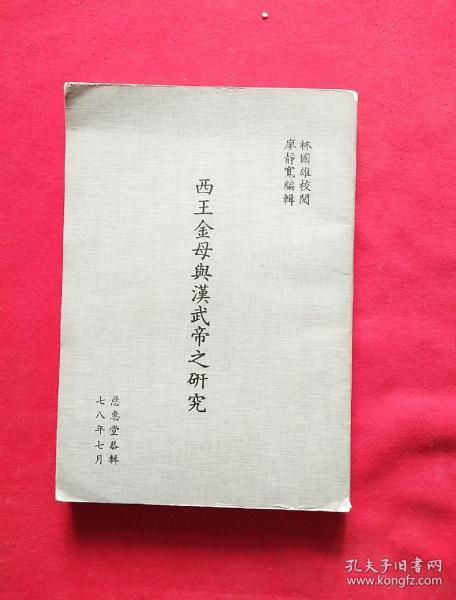 林國雄校閱
廖靜寬編輯
西王金母與漢武帝之研究
慈惠堂恭輯
七八年七月
孔夫子旧书网
www.kongfz.com